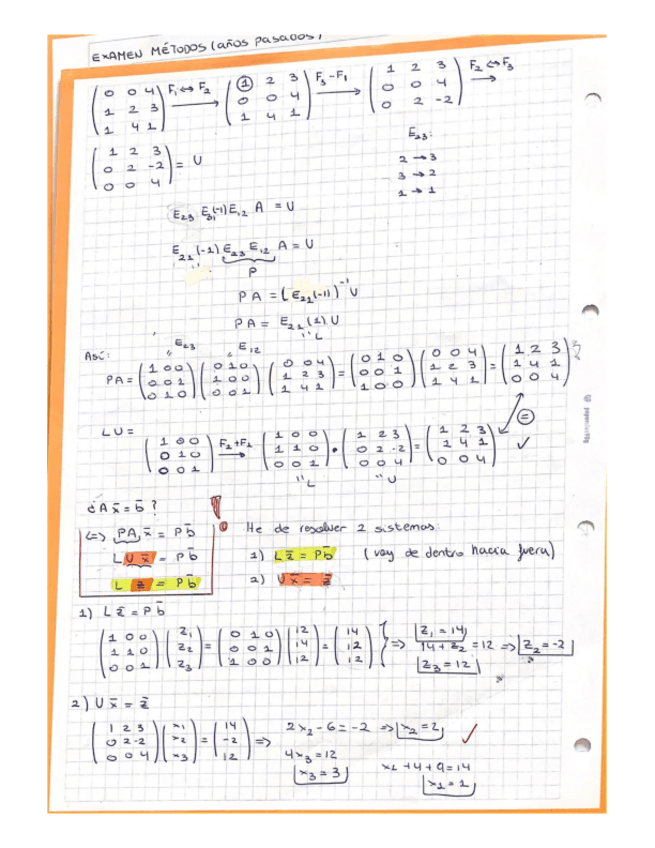 EXAMEN MÉTODOS (años pasados)
(0 0 4; 1 2 3; 1 4 1) F₁↔F₂ → (① 2 3; 0 0 4; 1 4 1) F₃-F₁ → (1 2 3; 0 0 4; 0 2 -2) F₂↔F₃ →
(1 2 3; 0 2 -2; 0 0 4) = U
E₂₃:
2→3
3→2
1→1
E₂₃ E₃₁(-1) E₁₂ A = U
E₂₁(-1) E₂₃ E₁₂ A = U
P
PA = (E₂₁(-1))⁻¹ U
PA = E₂₁(1) U
"L
Así:
"E₂₃ "E₁₂
PA = (1 0 0; 0 0 1; 0 1 0) (0 1 0; 1 0 0; 0 0 1) (0 0 4; 1 2 3; 1 4 1) = (0 1 0; 0 0 1; 1 0 0) (0 0 4; 1 2 3; 1 4 1) = (1 2 3; 1 4 1; 0 0 4)
=
LU = (1 0 0; 0 1 0; 0 0 1) F₂+F₁ → (1 0 0; 1 1 0; 0 0 1) · (1 2 3; 0 2 -2; 0 0 4) = (1 2 3; 1 4 1; 0 0 4) ✓
"L "U
¿A x̄ = b̄ ?
<=> PA x̄ = P b̄
L U x̄ = P b̄
L z̄ = P b̄
He de resolver 2 sistemas:
1) L z̄ = P b̄ (voy de dentro hacia fuera)
2) U x̄ = z̄
1) L z̄ = P b̄
(1 0 0; 1 1 0; 0 0 1) (z₁; z₂; z₃) = (0 1 0; 0 0 1; 1 0 0) (12; 14; 12) = (14; 12; 12) => z₁ = 14
14 + z₂ = 12 => z₂ = -2
z₃ = 12
2) U x̄ = z̄
(1 2 3; 0 2 -2; 0 0 4) (x₁; x₂; x₃) = (14; -2; 12) => 2x₂ - 6 = -2 => x₂ = 2 ✓
4x₃ = 12
x₃ = 3
x₁ + 4 + 9 = 14
x₁ = 1